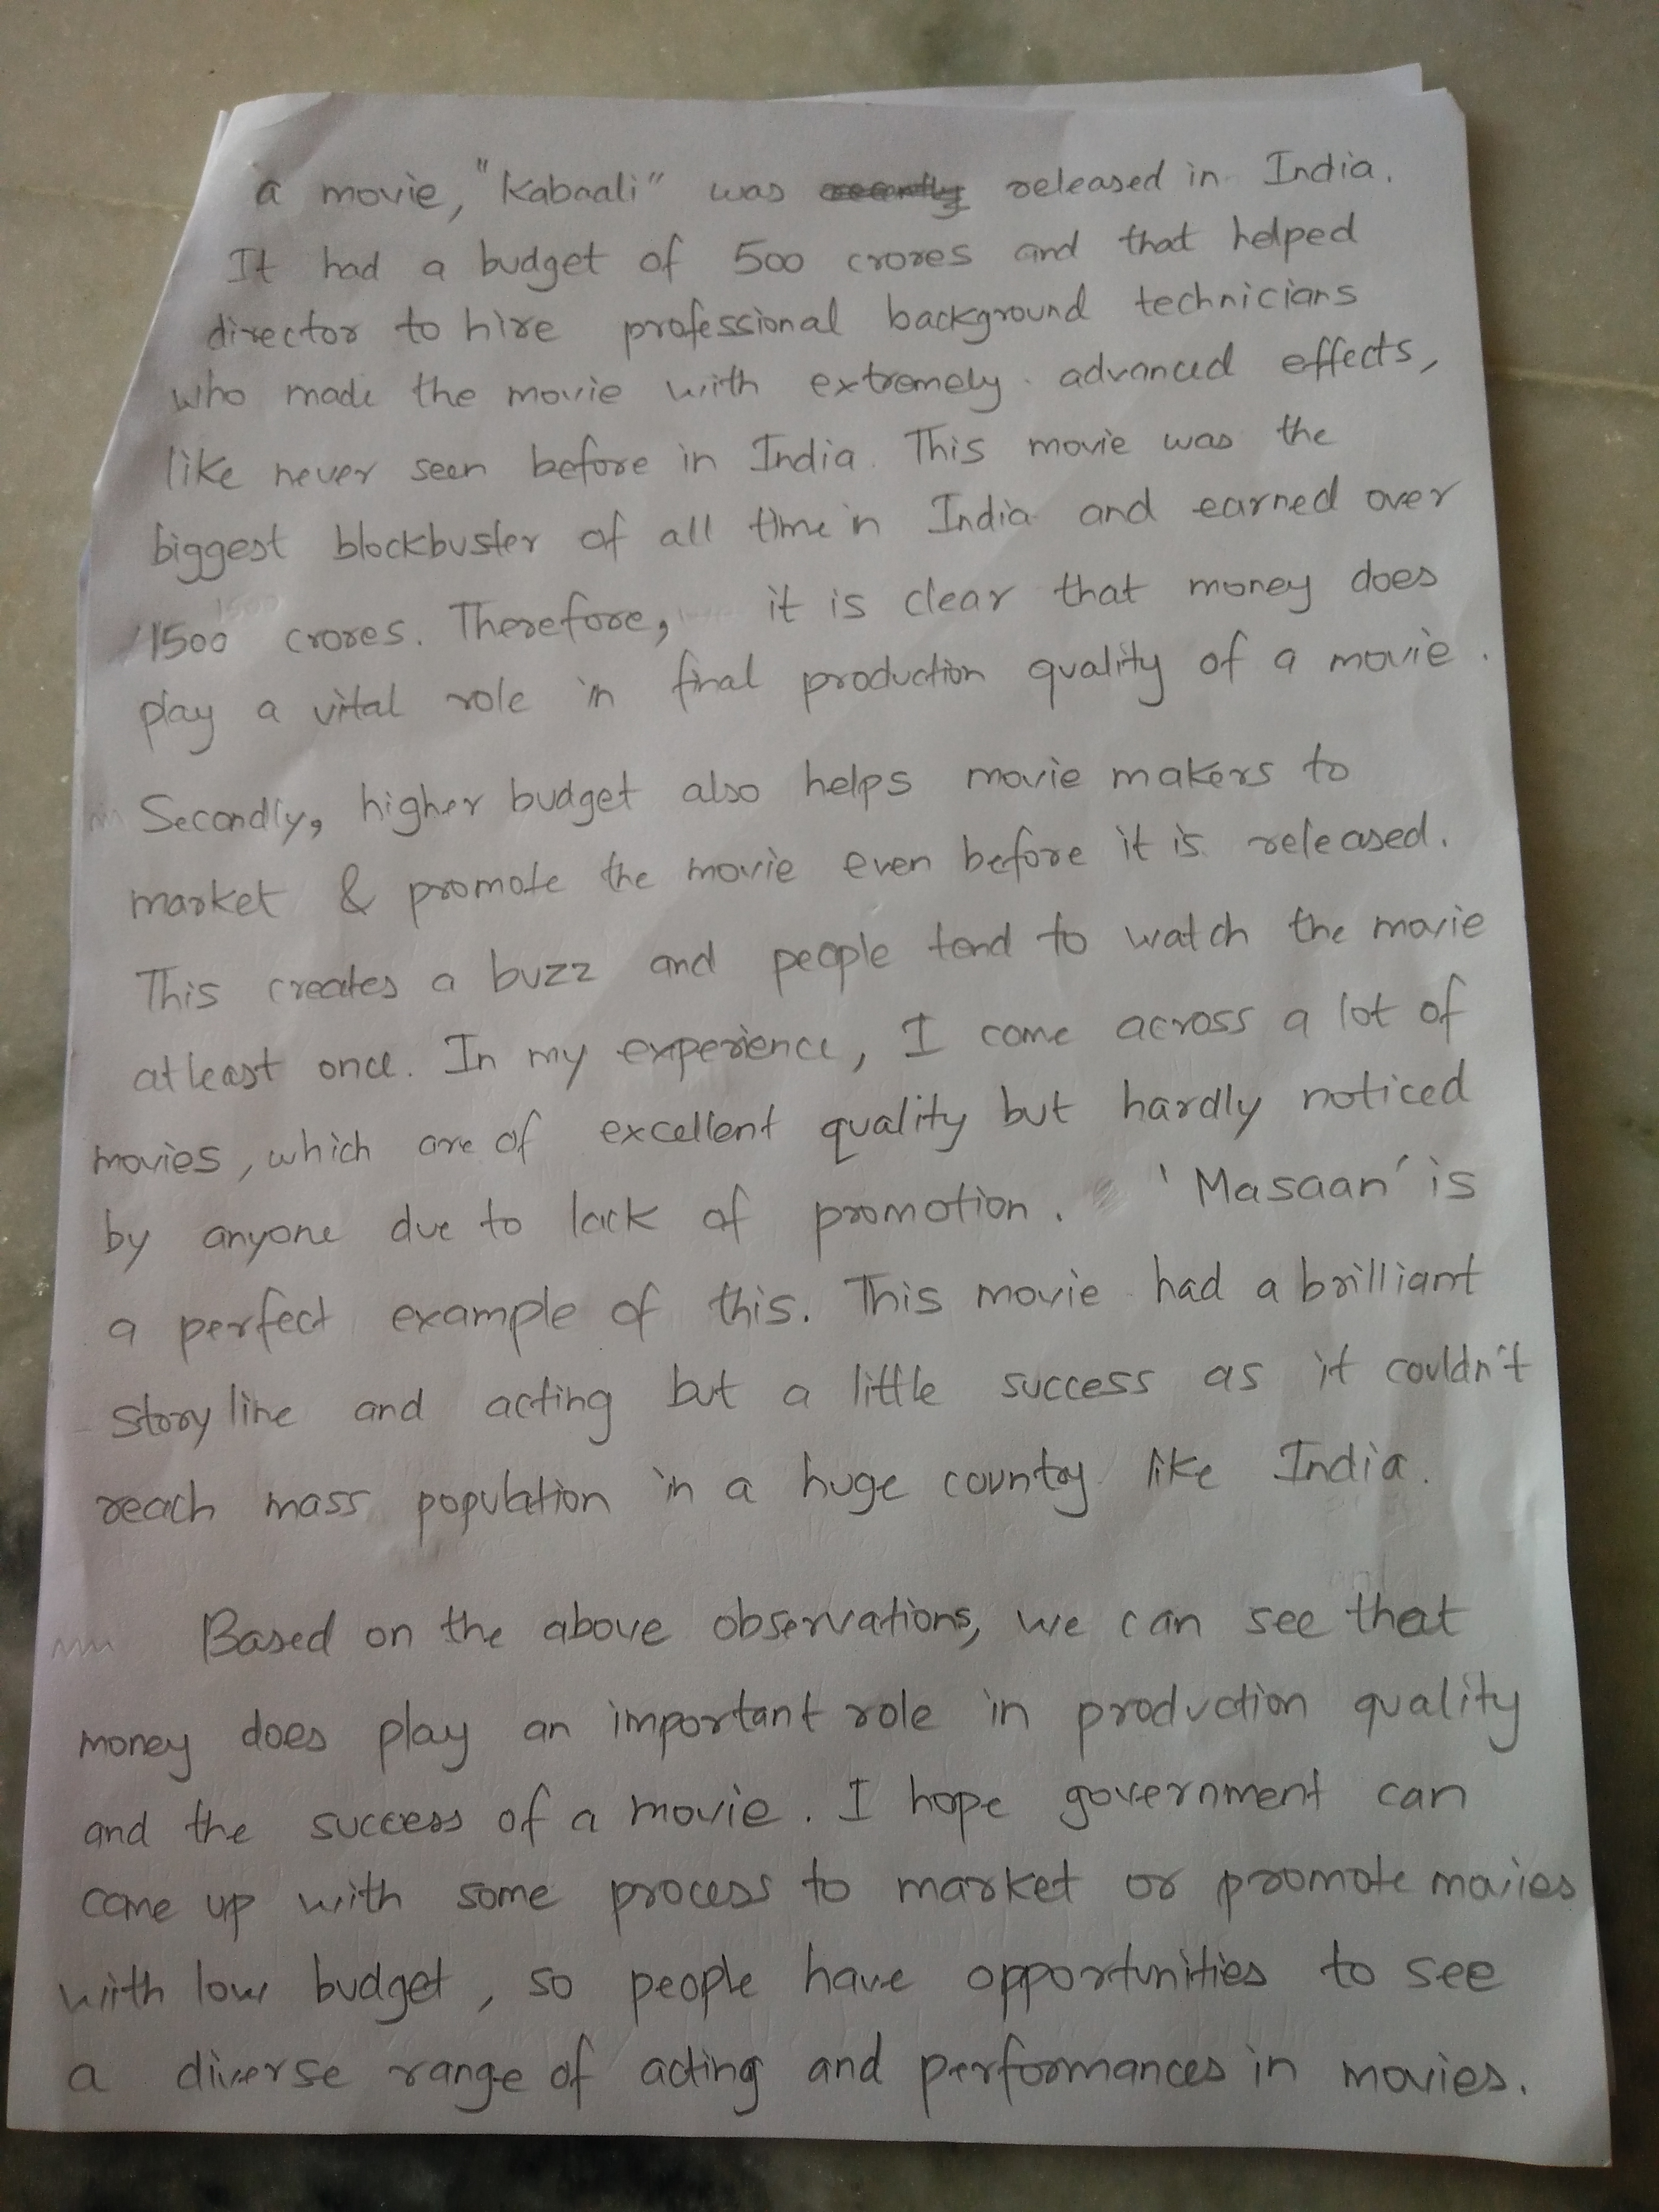 a movie, "Kabaali" was recently released in India.
It had a budget of 500 crores and that helped
director to hire professional background technicians
who made the movie with extremely advanced effects,
like never seen before in India. This movie was the
biggest blockbuster of all time in India and earned over
1500 crores. Therefore, it is clear that money does
play a vital role in final production quality of a movie.
Secondly, higher budget also helps movie makers to
market & promote the movie even before it is released.
This creates a buzz and people tend to watch the movie
atleast once. In my experience, I come across a lot of
movies, which are of excellent quality but hardly noticed
by anyone due to lack of promotion. 'Masaan' is
a perfect example of this. This movie had a brilliant
story line and acting but a little success as it couldn't
reach mass population in a huge country like India.
Based on the above observations, we can see that
money does play an important role in production quality
and the success of a movie. I hope government can
come up with some process to market or promote movies
with low budget, so people have opportunities to see
a diverse range of acting and performances in movies.